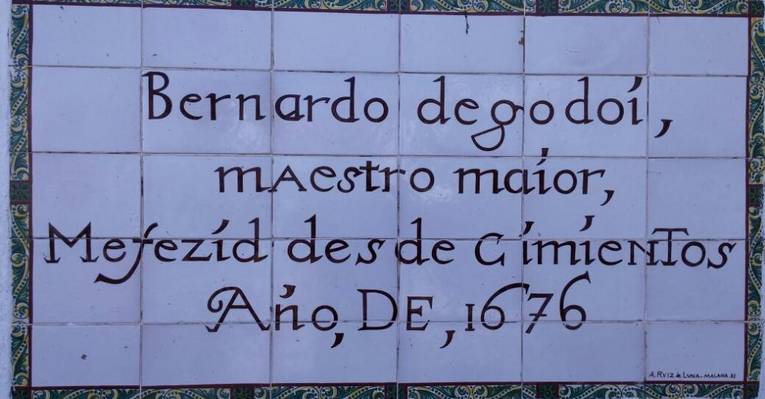 Bernardo degodoí,
mAestro maíor,
Mefezíd desde CímíeNTos
Año, DE, 1676
A. RVIZ de LUNA - MALAGA. 81